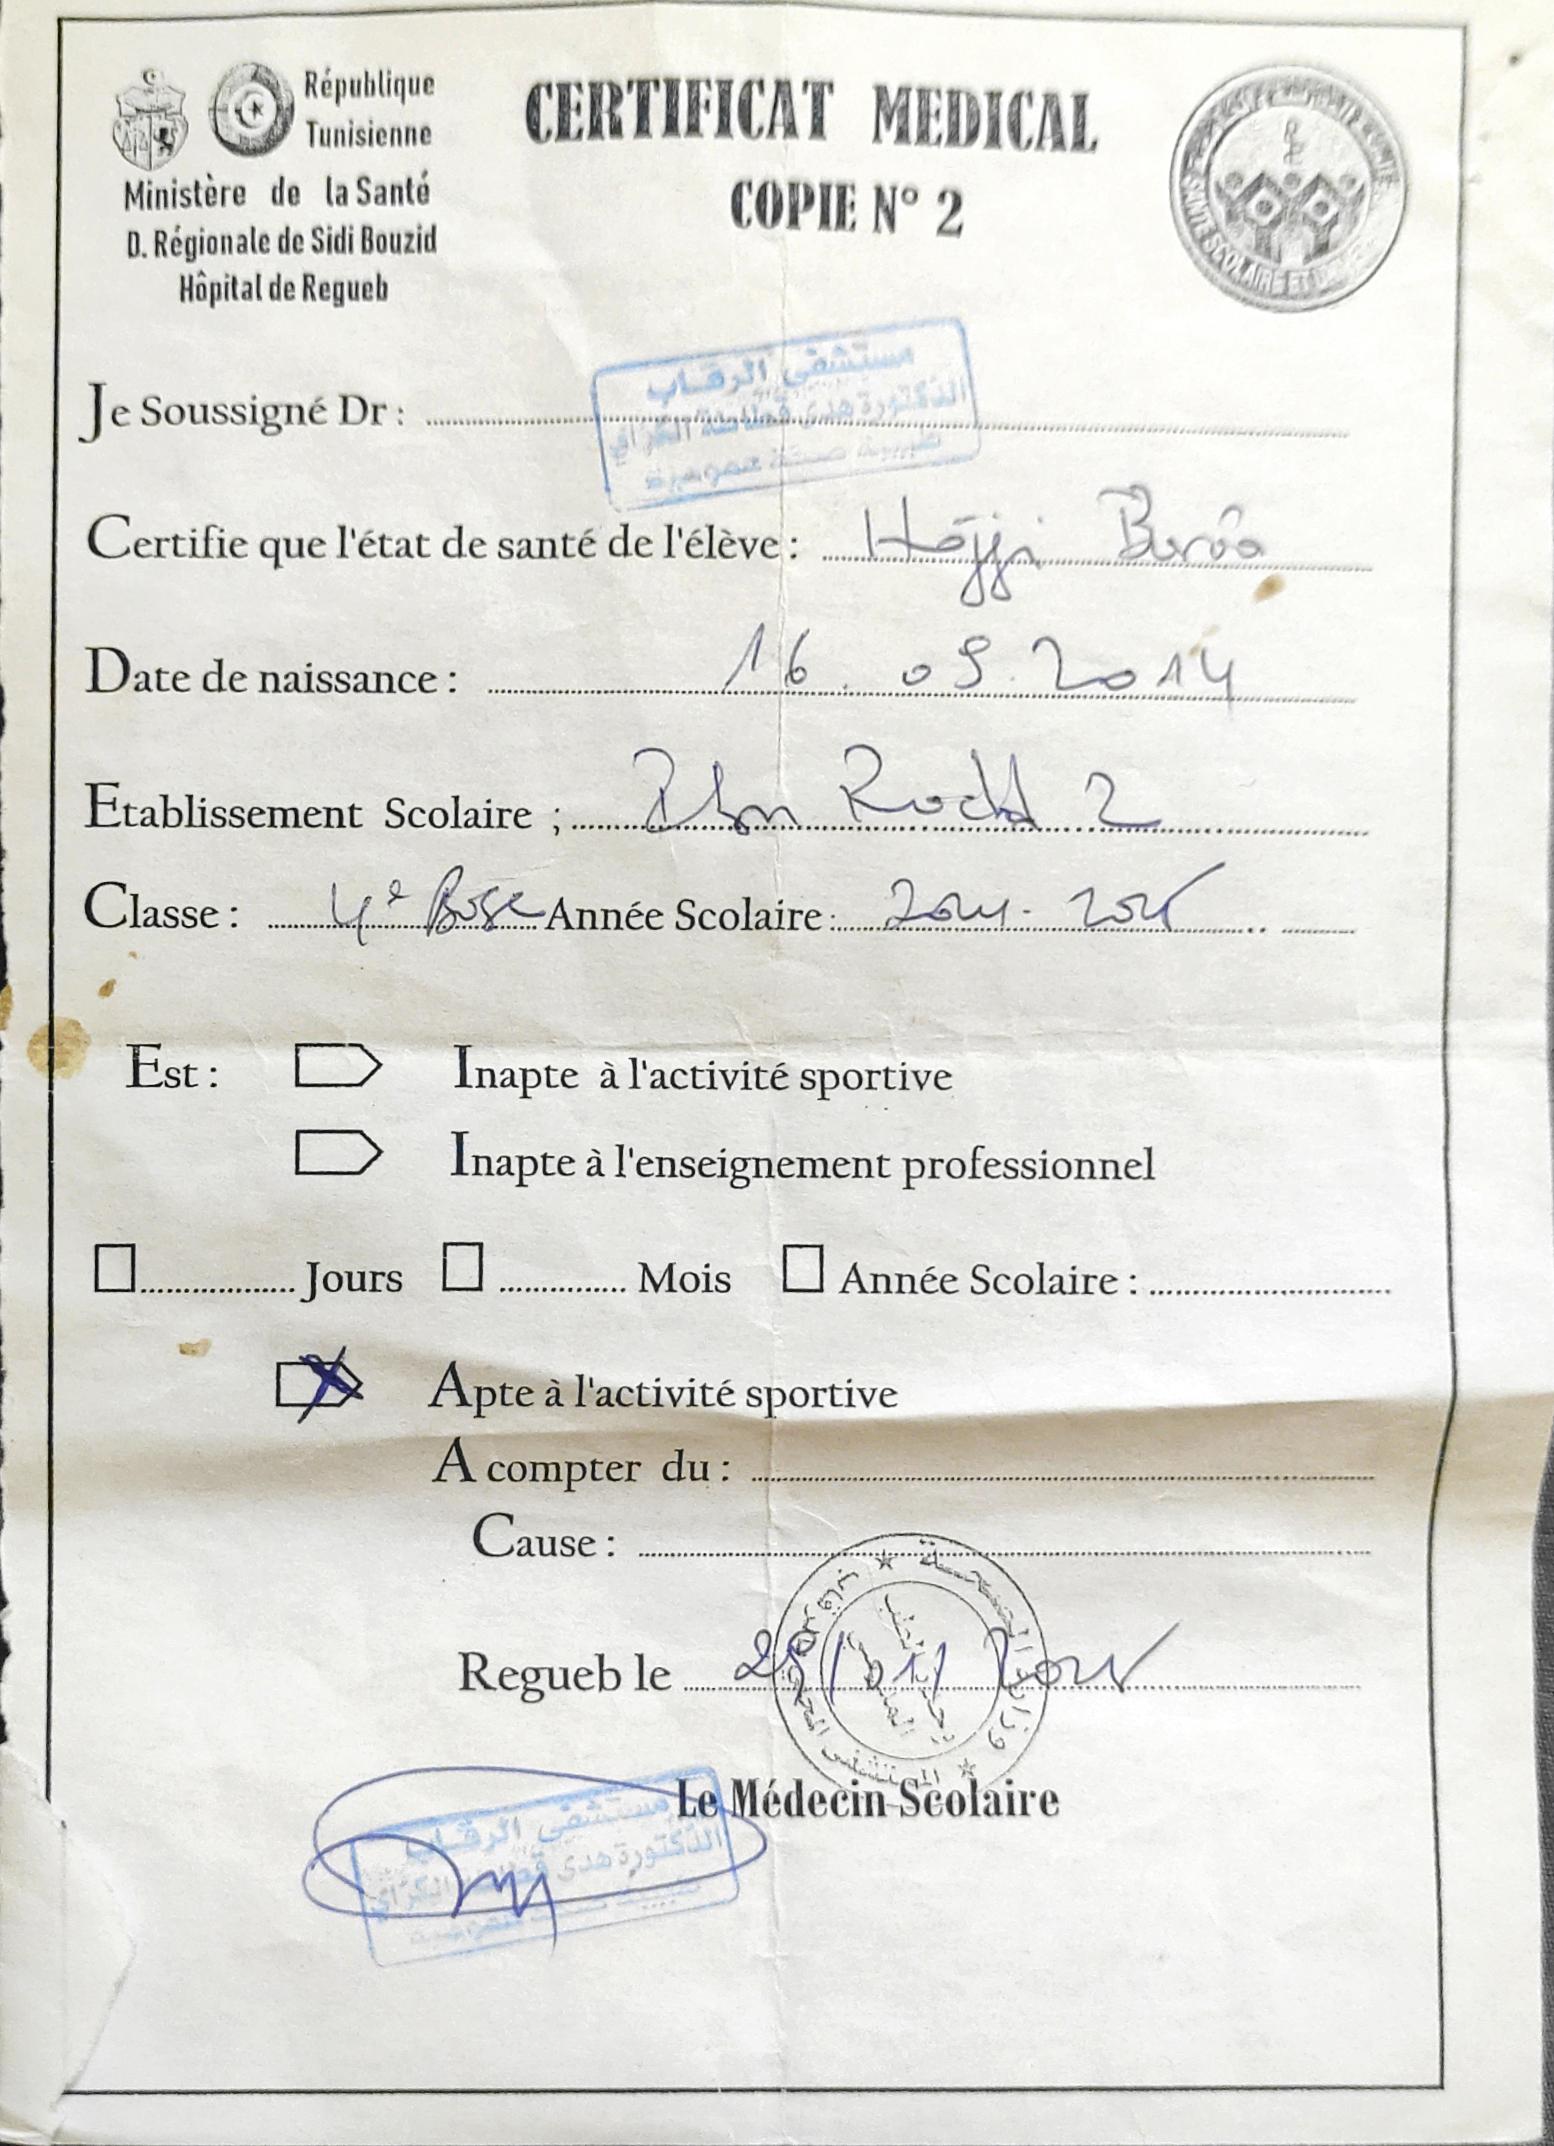 République
Tunisienne
Ministère de la Santé
D. Régionale de Sidi Bouzid
Hôpital de Regueb
CERTIFICAT MEDICAL
COPIE N° 2
SANTE SCOLAIRE ET
مستشفى الرقاب
Je Soussigné Dr :
الدكتورة هدى
طبيبة صحة عمومية
Certifie que l'état de santé de l'élève : Hajji
Date de naissance : 16.09.2014
Etablissement Scolaire ; Ibn Rochd 2
Classe : 4e Base Année Scolaire : 2024-2025
Est : Inapte à l'activité sportive
Inapte à l'enseignement professionnel
Jours Mois Année Scolaire :
X Apte à l'activité sportive
A compter du :
Cause :
وزارة الصحة
المستشفى المحلي بالرقاب
Regueb le 25/01/2025
Le Médecin Scolaire
مستشفى الرقاب
الدكتورة هدى